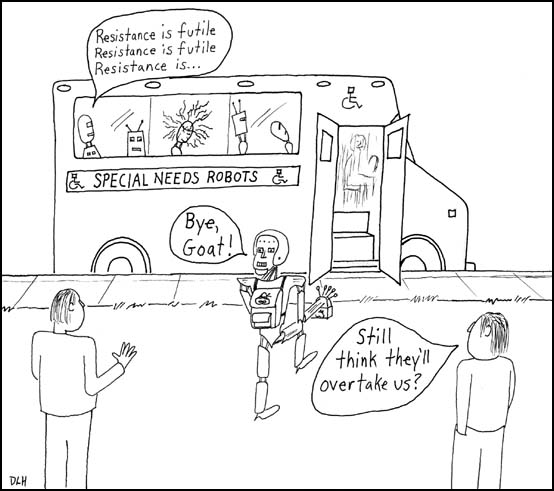 Resistance is futile
Resistance is futile
Resistance is...
SPECIAL NEEDS ROBOTS
Bye,
Goat!
Still
think they'll
overtake us?
DLH